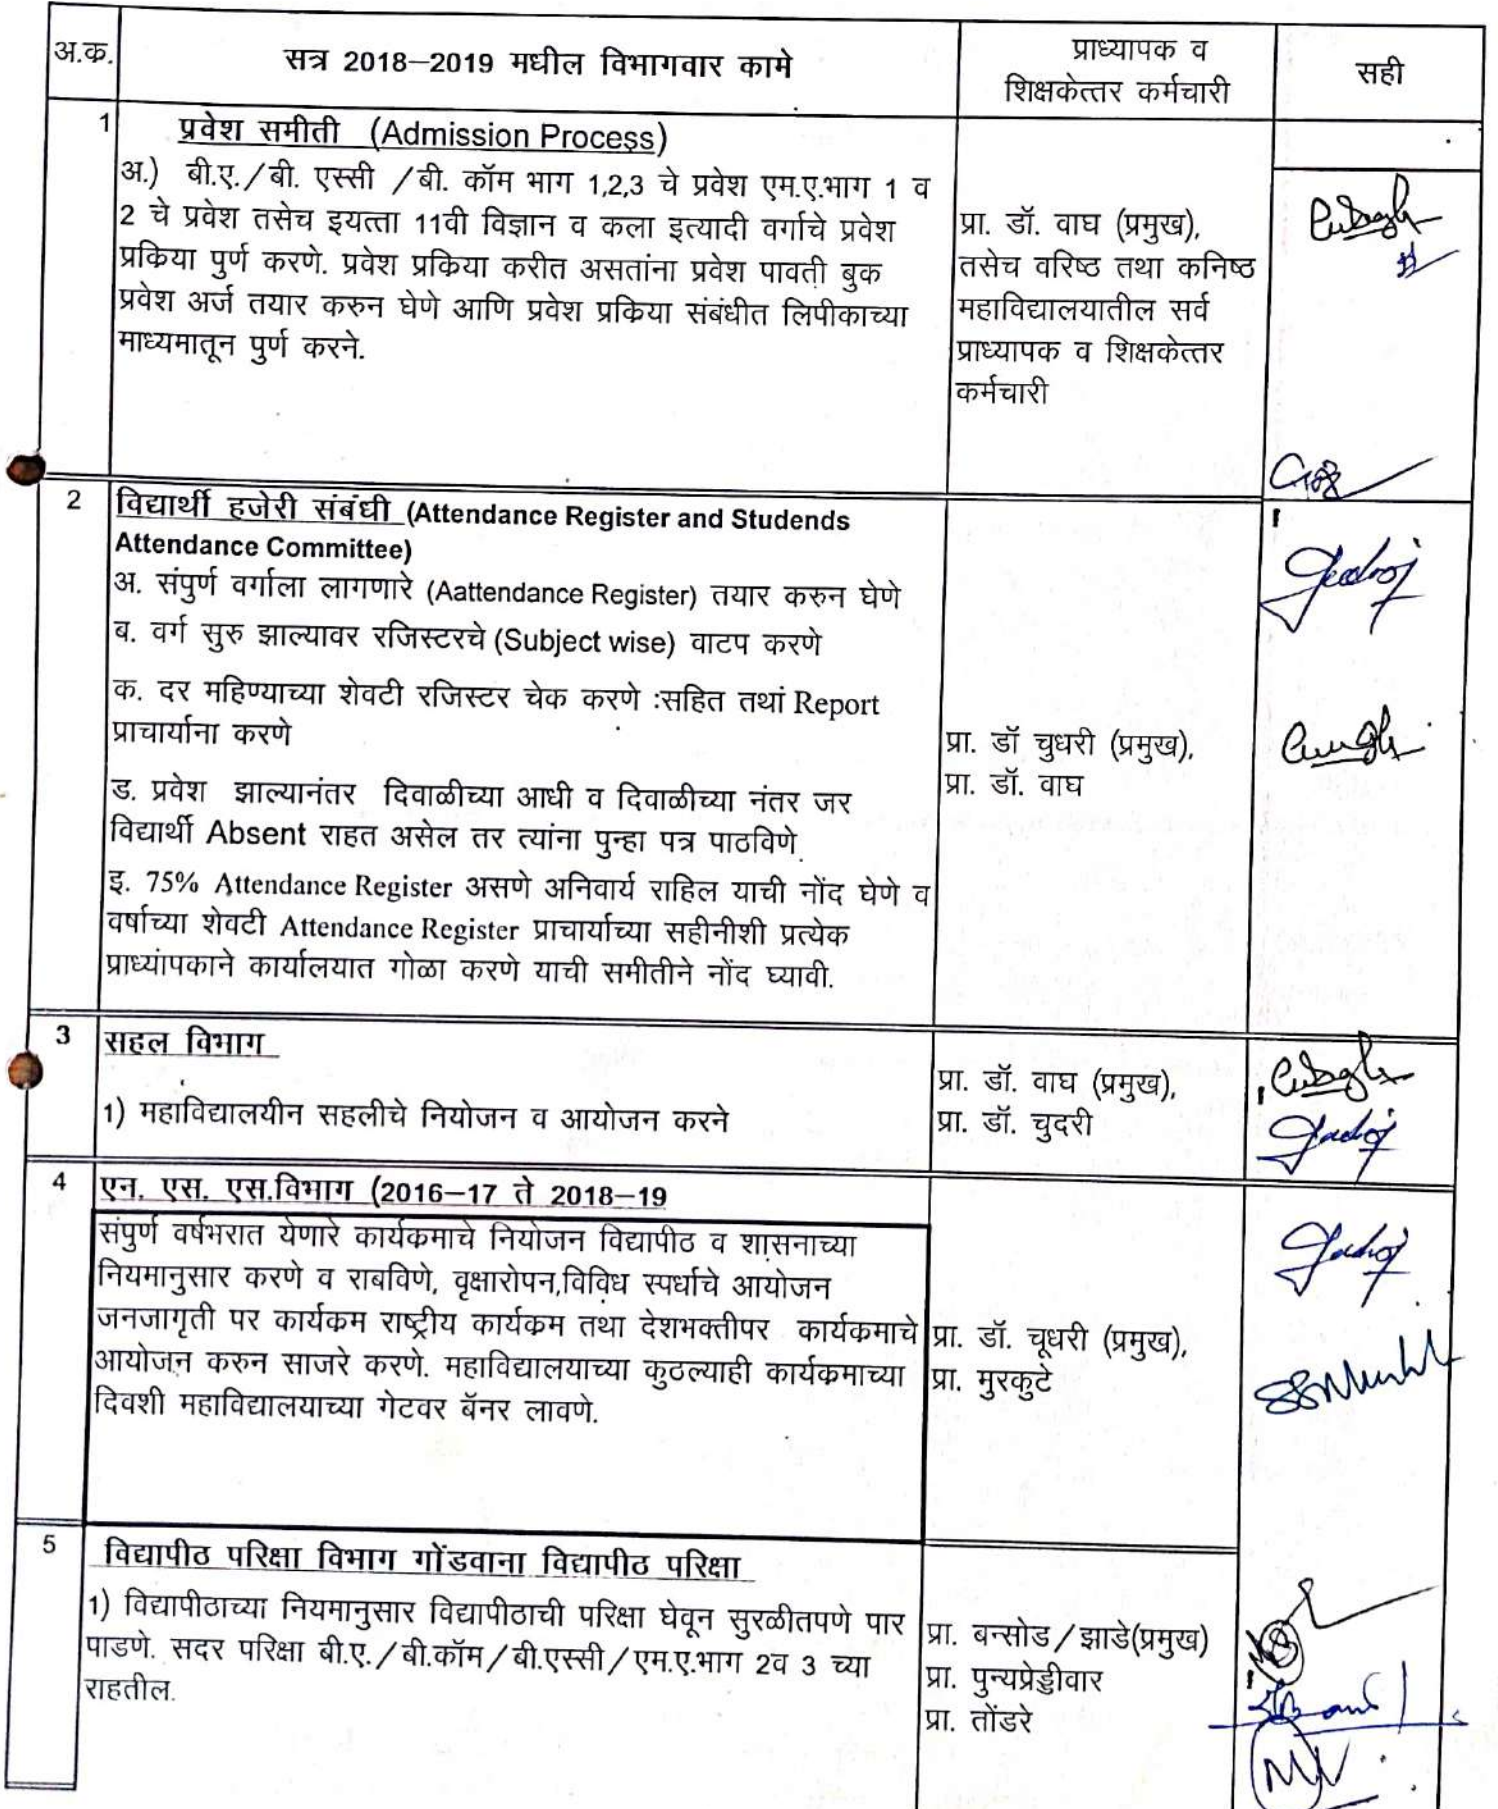 अ.क.
सत्र 2018–2019 मधील विभागवार कामे
प्राध्यापक व
शिक्षकेत्तर कर्मचारी
सही
1
प्रवेश समीती (Admission Process)
अ.) बी.ए./बी. एस्सी /बी. कॉम भाग 1,2,3 चे प्रवेश एम.ए.भाग 1 व
2 चे प्रवेश तसेच इयत्ता 11वी विज्ञान व कला इत्यादी वर्गाचे प्रवेश
प्रकिया पुर्ण करणे. प्रवेश प्रकिया करीत असतांना प्रवेश पावती बुक
प्रवेश अर्ज तयार करुन घेणे आणि प्रवेश प्रकिया संबंधीत लिपीकाच्या
माध्यमातून पुर्ण करने.
प्रा. डॉ. वाघ (प्रमुख),
तसेच वरिष्ठ तथा कनिष्ठ
महाविद्यालयातील सर्व
प्राध्यापक व शिक्षकेत्तर
कर्मचारी
2
विद्यार्थी हजेरी संबंधी (Attendance Register and Studends
Attendance Committee)
अ. संपुर्ण वर्गाला लागणारे (Aattendance Register) तयार करुन घेणे
ब. वर्ग सुरु झाल्यावर रजिस्टरचे (Subject wise) वाटप करणे
क. दर महिण्याच्या शेवटी रजिस्टर चेक करणे :सहित तथां Report
प्राचार्याना करणे
ड. प्रवेश झाल्यानंतर दिवाळीच्या आधी व दिवाळीच्या नंतर जर
विद्यार्थी Absent राहत असेल तर त्यांना पुन्हा पत्र पाठविणे.
इ. 75% Attendance Register असणे अनिवार्य राहिल याची नोंद घेणे व
वर्षाच्या शेवटी Attendance Register प्राचार्याच्या सहीनीशी प्रत्येक
प्राध्यांपकाने कार्यालयात गोळा करणे याची समीतीने नोंद घ्यावी.
प्रा. डॉ चुधरी (प्रमुख),
प्रा. डॉ. वाघ
3
सहल विभाग
1) महाविद्यालयीन सहलीचे नियोजन व आयोजन करने
प्रा. डॉ. वाघ (प्रमुख),
प्रा. डॉ. चुदरी
4
एन. एस. एस.विभाग (2016–17 ते 2018–19
संपुर्ण वर्षभरात येणारे कार्यकमाचे नियोजन विद्यापीठ व शासनाच्या
नियमानुसार करणे व राबविणे, वृक्षारोपन,विविध स्पर्धाचे आयोजन
जनजागृती पर कार्यकम राष्ट्रीय कार्यकम तथा देशभक्तीपर कार्यकमाचे
आयोजन करुन साजरे करणे. महाविद्यालयाच्या कुठल्याही कार्यकमाच्या
दिवशी महाविद्यालयाच्या गेटवर बॅनर लावणे.
प्रा. डॉ. चूधरी (प्रमुख),
प्रा. मुरकुटे
5
विद्यापीठ परिक्षा विभाग गोंडवाना विद्यापीठ परिक्षा
1) विद्यापीठाच्या नियमानुसार विद्यापीठाची परिक्षा घेवून सुरळीतपणे पार
पाडणे. सदर परिक्षा बी.ए./बी.कॉम/बी.एस्सी/एम.ए.भाग 2व 3 च्या
राहतील.
प्रा. बन्सोड/झाडे(प्रमुख)
प्रा. पुन्यप्रेड्डीवार
प्रा. तोंडरे